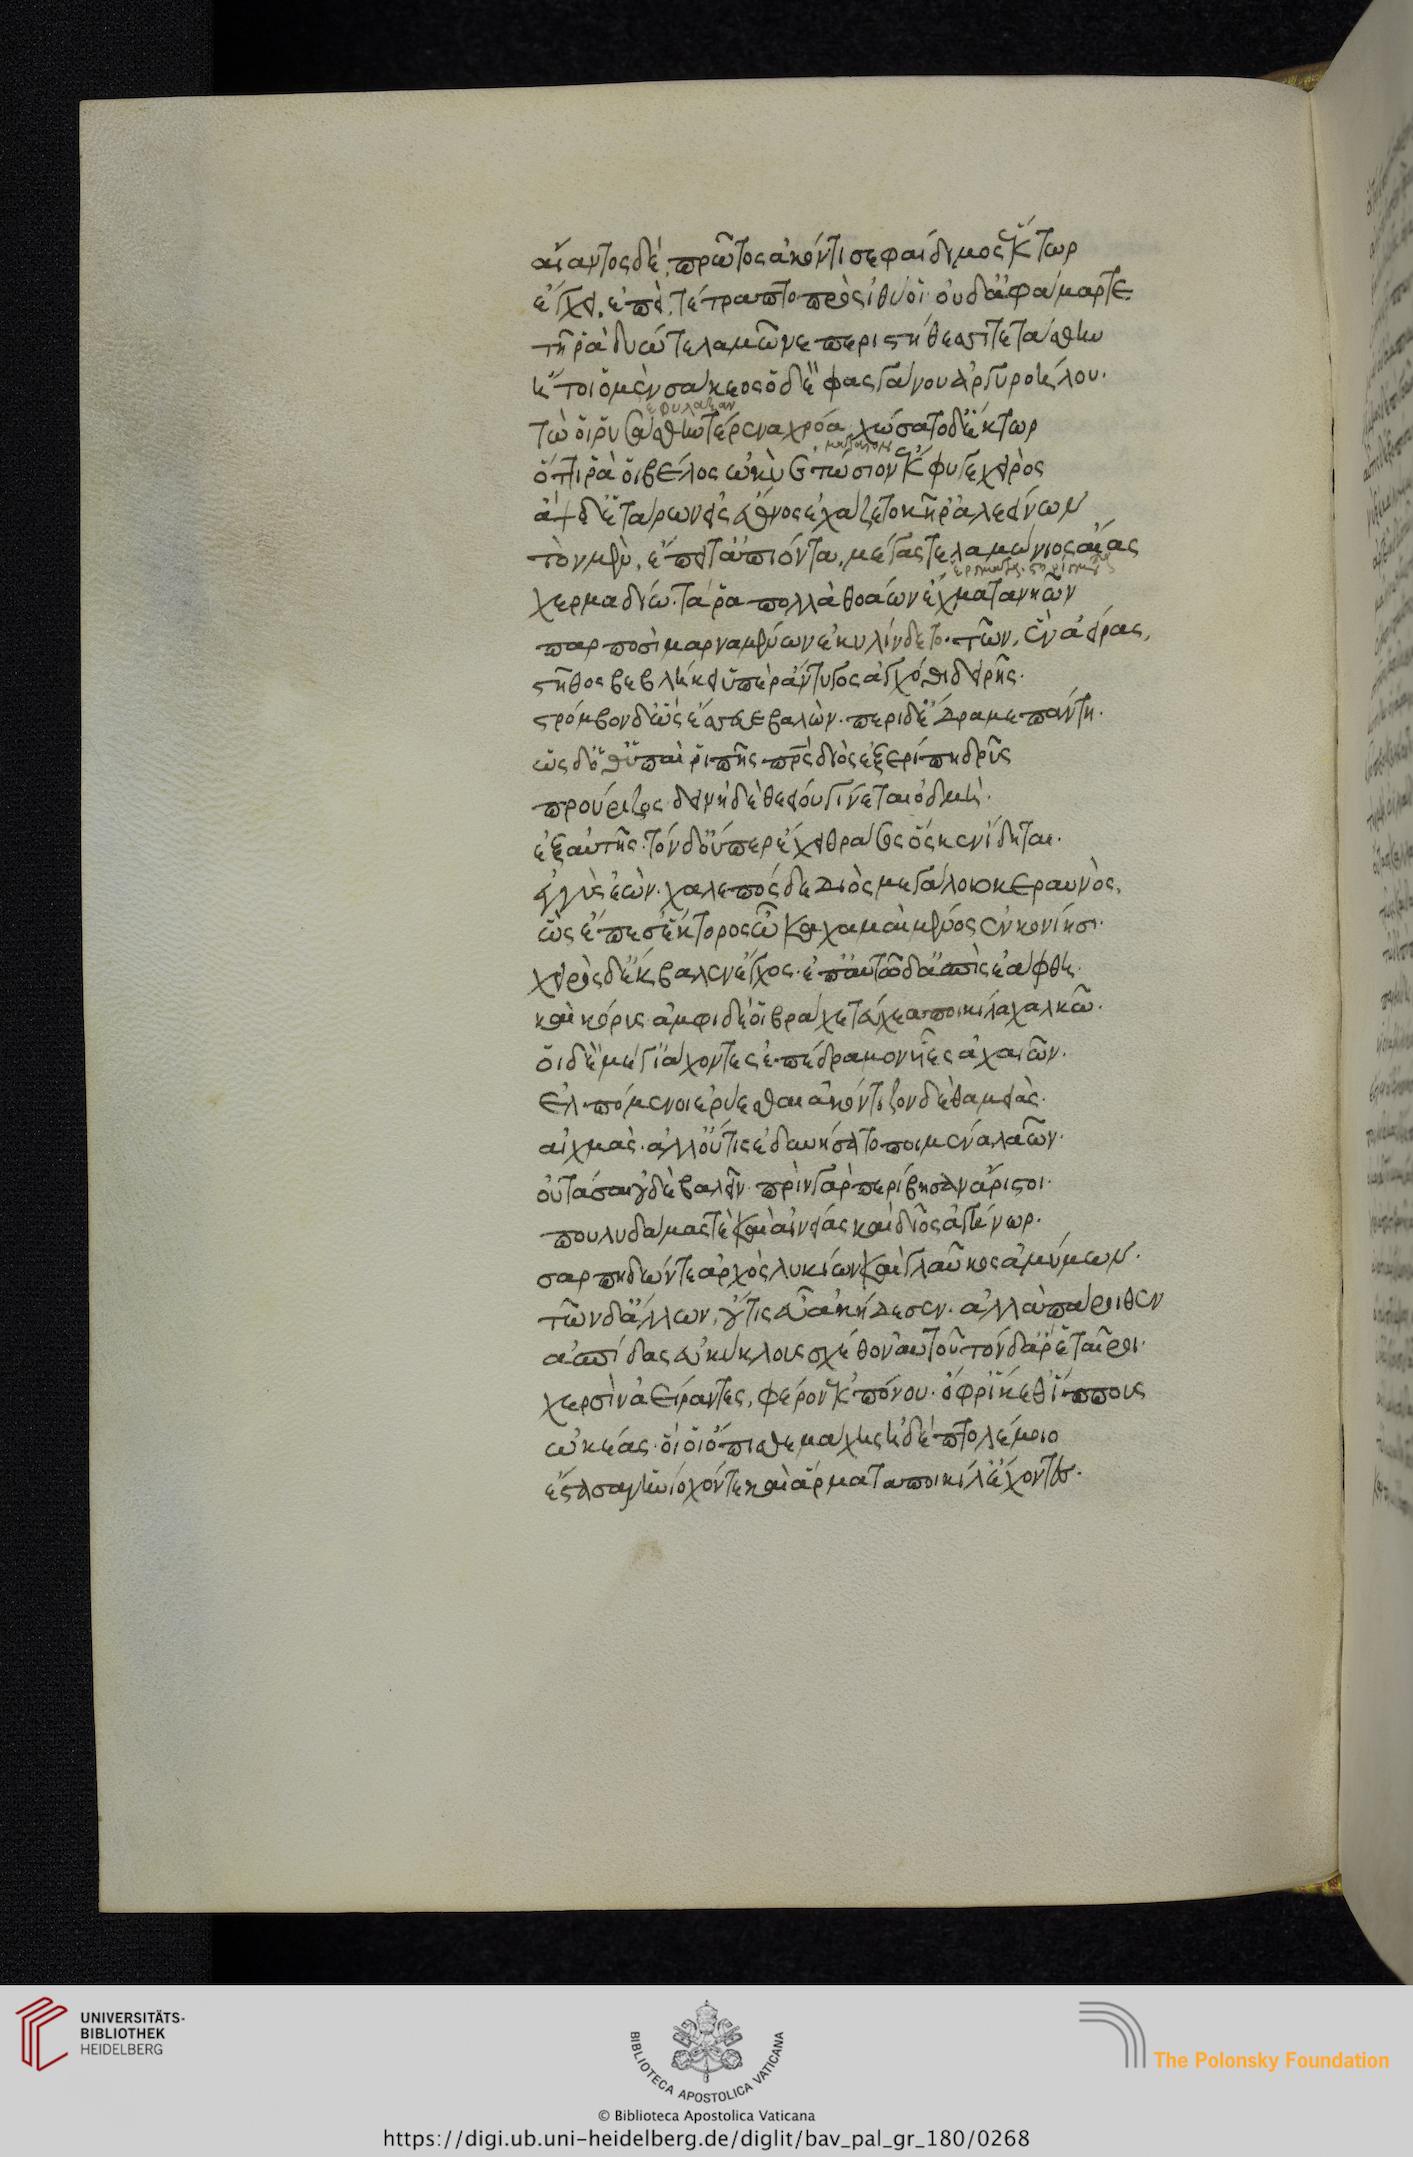 αἴαντος δὲ, πρῶτος ἀκόντισε φαίδιμος ἕκτωρ
ἔγχει, ἐπεὶ, τέτραπτο πρὸς ἰθύ οἱ· οὐδ' ἀφάμαρτε
τῇ ῥα δύω τελαμῶνε περὶ στήθεσσι τετάσθην
ἤτοι ὁ μὲν σάκεος ὁ δὲ φασγάνου ἀργυροήλου·
ἐφύλαξαν
τώ οἱ ῥυσάσθην τέρενα χρόα, χώσατο δ' ἕκτωρ
ὅττι ῥά οἱ βέλος ὠκὺ ἐτώσιον ἔκφυγε χειρὸς
ἂψ δ' ἑτάρων εἰς ἔθνος ἐχάζετο κῆρ' ἀλεείνων
τὸν μὲν, ἔπειτ' ἀπιόντα, μέγας τελαμώνιος αἴας
χερμαδίῳ· τά ῥα πολλὰ θοάων ἔχματα νηῶν
παρ ποσὶ μαρναμένων ἐκυλίνδετο· τῶν, ἓν ἀείρας,
στῆθος βεβλήκει ὑπὲρ ἄντυγος ἀγχόθι δειρῆς·
στρόμβον δ' ὣς ἔσσευε βαλὼν· περὶ δ' ἔδραμε πάντη·
ὡς δ' ὅθ' ὑπαὶ ῥιπῆς πρς διὸς ἐξερίπη δρῦς
πρόυριζος· δεινὴ δὲ θεείου γίνεται ὀδμὴ·
ἐξ αὐτῆς· τὸν δ' οὔπερ ἔχει θράσος ὅς κεν ἴδηται·
ἐγγὺς ἐὼν· χαλεπὸς δὲ διὸς μεγάλοιο κεραυνὸς,
ὣς ἔπεσ' ἕκτορος ὦκα χαμαὶ μένος ἐν κονίησι·
χειρὸς δ' ἔκβαλεν ἔγχος· ἐπ' αὐτῷ δ' ἀσπὶς ἑάφθη·
καὶ κόρυς· ἀμφὶ δέ οἱ βράχε τεύχεα ποικίλα χαλκῷ·
οἱ δὲ μέγ' ἰάχοντες ἐπέδραμον υἷες ἀχαιῶν·
ἐλπόμενοι ἐρύεσθαι ἀκόντιζον δὲ θαμειὰς·
αἰχμὰς· ἀλλ' οὔτις ἐδυνήσατο ποιμένα λαῶν·
οὐτάσαι οὐδὲ βαλεῖν· πρὶν γὰρ περίβησαν ἄριστοι·
πουλυδάμας τὲ καὶ αἰνείας καὶ δῖος ἀγήνωρ·
σαρπηδών τ' ἀρχὸς λυκίων καὶ γλαῦκος ἀμύμων·
τῶν δ' ἄλλων, οὔτις εὗ ἀκήδεσεν· ἀλλὰ πάροιθεν
ἀσπίδας εὐκύκλους σχέθον αὐτοῦ τὸν δ' ἄρ' ἑταῖροι·
χερσὶν ἀείραντες, φέρον ἐκ πόνου· ὄφρ' ἵκεθ' ἵππους
ὠκέας· οἵ οἱ ὄπισθε μάχης ἠδὲ πτολέμοιο
ἕστασαν ἡνίοχόν τε καὶ ἅρματα ποικίλ' ἔχοντες·
UNIVERSITÄTS-
BIBLIOTHEK
HEIDELBERG
BIBLIOTECA APOSTOLICA VATICANA
The Polonsky Foundation
© Biblioteca Apostolica Vaticana
https://digi.ub.uni-heidelberg.de/diglit/bav_pal_gr_180/0268